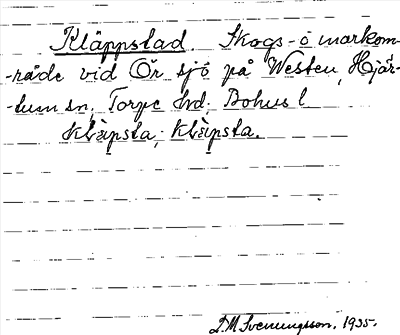 Kläppstad. Skogs- o markom-
-råde vid Ör sjö på Westen, Hjär-
-tum sn, Torpe hd, Bohus l
Klä̀psta; Klä̀psta.
D.M Svenungsson. 1935.